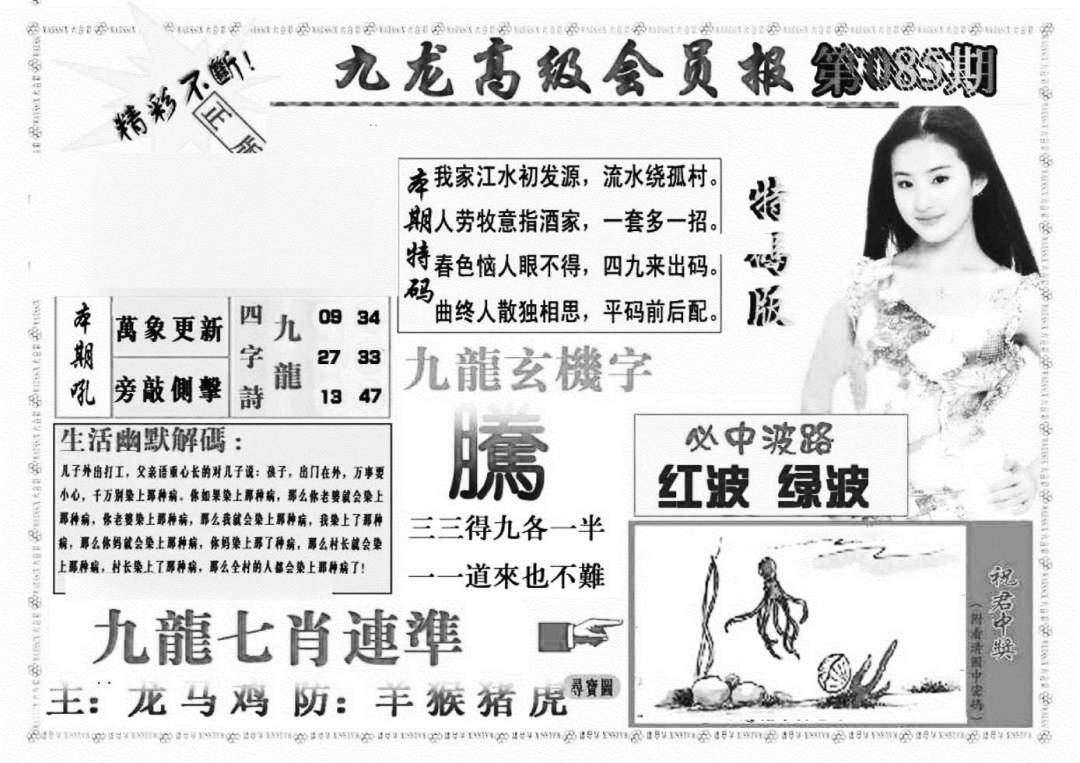 精彩不斷!
正版
九龙高级会员报
第085期
本期特码
我家江水初发源，流水绕孤村。
人劳牧意指酒家，一套多一招。
春色恼人眼不得，四九来出码。
曲终人散独相思，平码前后配。
特码版
本期吼
萬象更新
旁敲侧擊
四字詩
九龍
09 34
27 33
13 47
九龍玄機字
騰
三三得九各一半
一一道來也不難
生活幽默解碼：
儿子外出打工，父亲语重心长的对儿子说：孩子，出门在外，万事要
小心，千万别染上那种病。你如果染上那种病，那么你老婆就会染上
那种病，你老婆染上那种病，那么我就会染上那种病，我染上了那种
病，那么你妈就会染上那种病，你妈染上那了种病，那么村长就会染
上那种病，村长染上了那种病，那么全村的人都会染上那种病了!
必中波路
红波 绿波
九龍七肖連準
主：龙马鸡 防：羊猴猪虎
尋寶圖
祝君中獎
（附看清圖中密碼）